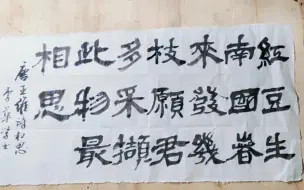 紅豆生
南國春
來發幾
枝願君
多采擷
此物最
相思
唐王維詩相思